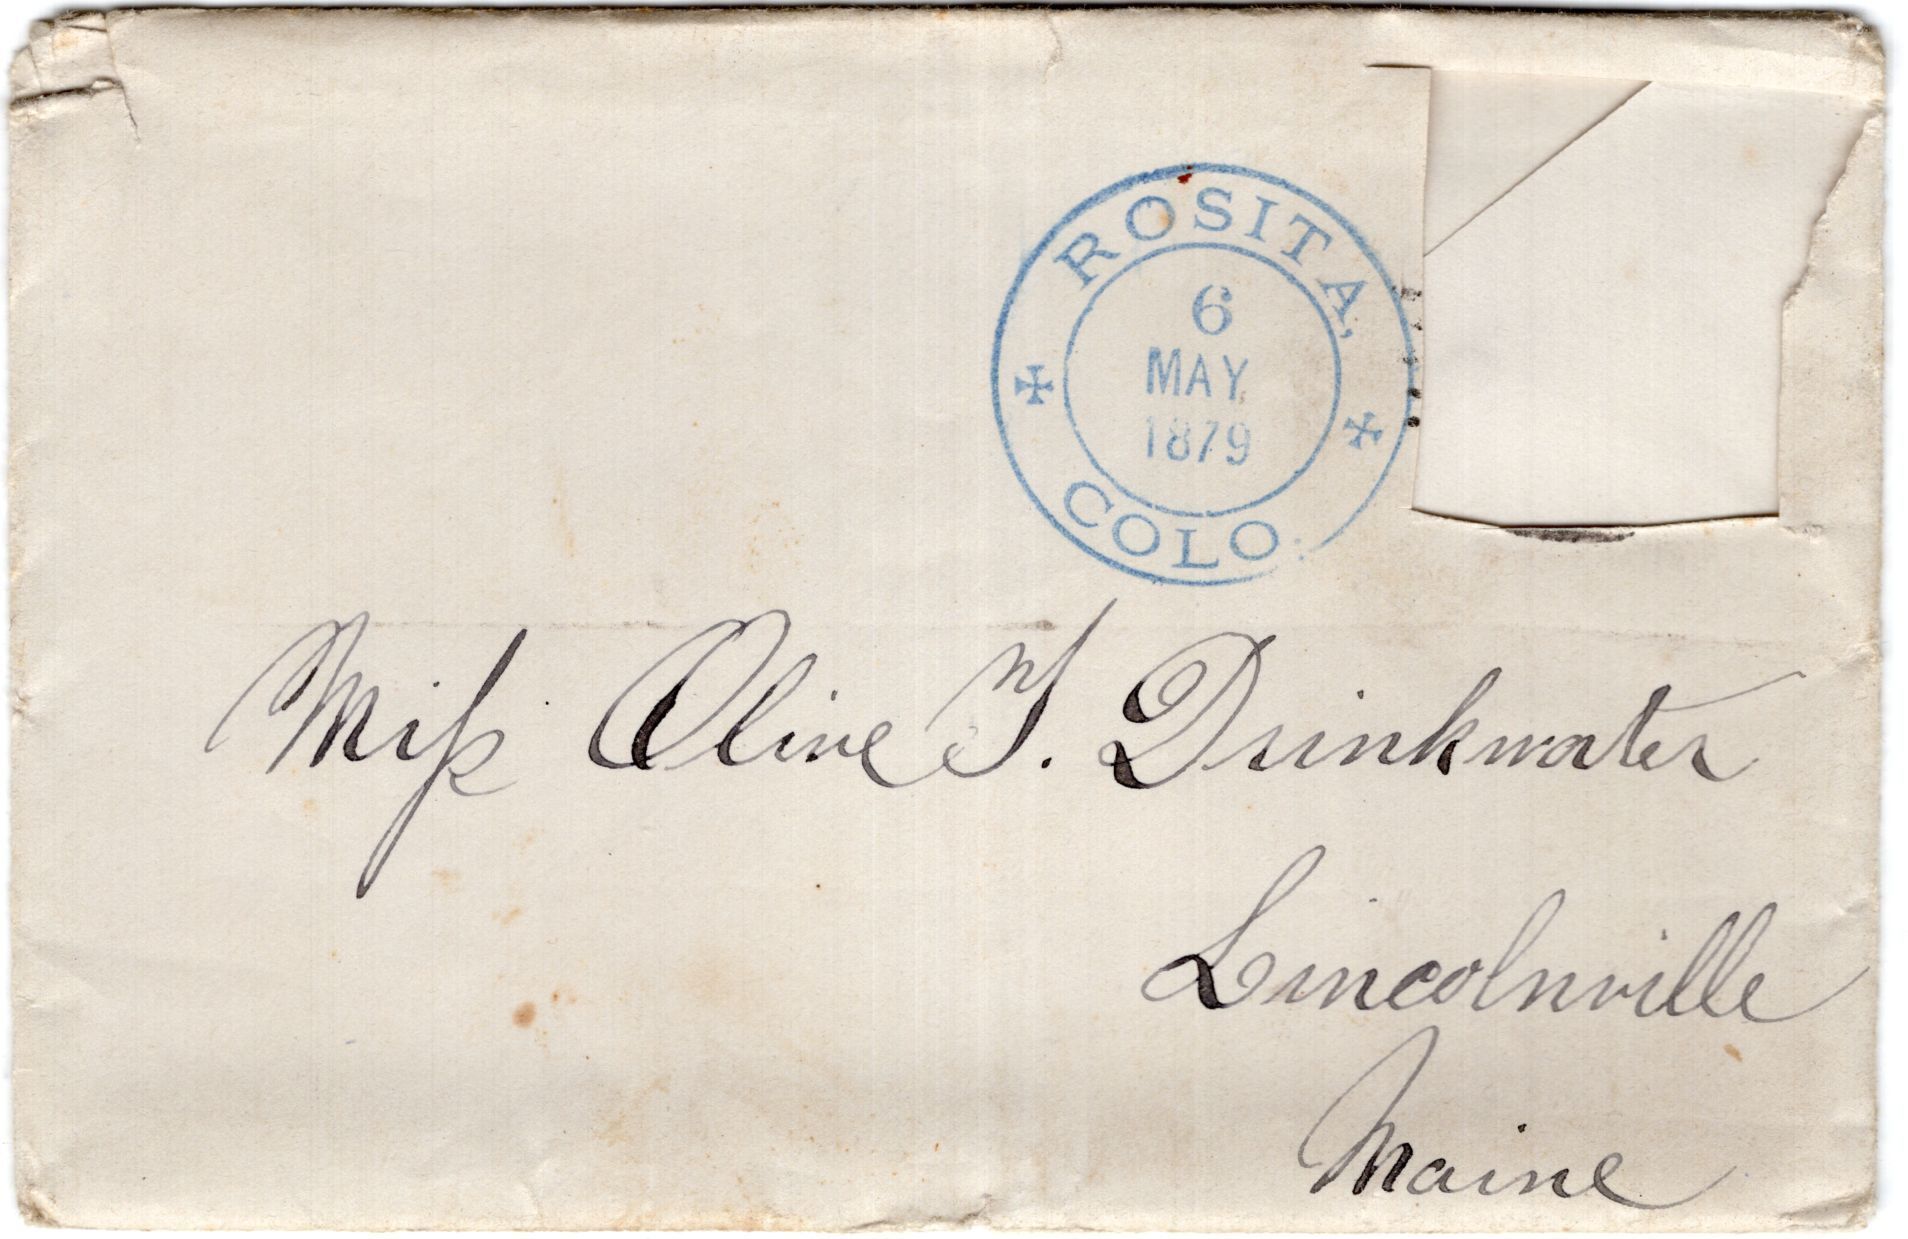 ROSITA,
6
MAY
1879
COLO.
Miss Olive T. Drinkwater
Lincolnville
Maine